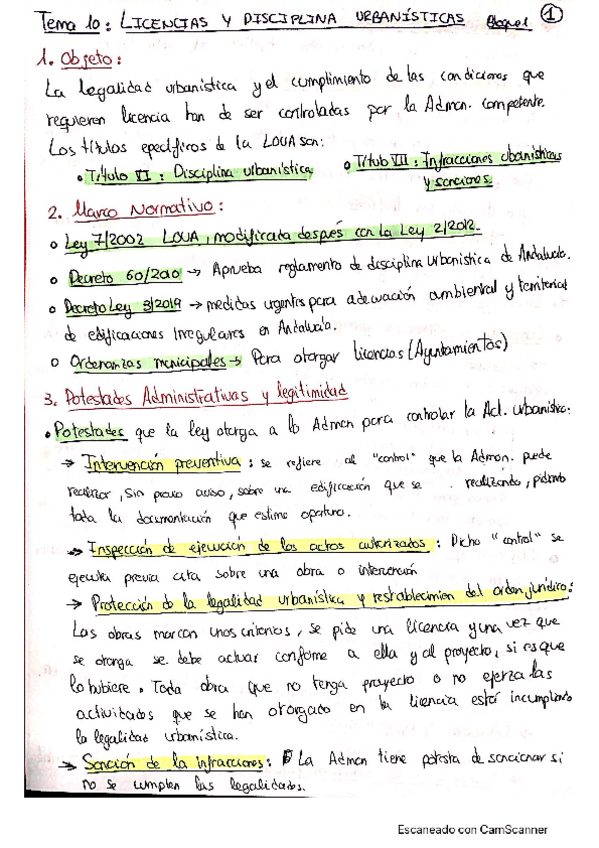 Tema 10: LICENCIAS Y DISCIPLINA URBANÍSTICAS Bloque 1 ①
1. Objeto:
La legalidad urbanística y el cumplimiento de las condiciones que
requieren licencia han de ser controladas por la Admon. competente.
Los títulos epecíficos de la LOUA son:
• Título VI: Disciplina urbanística • Título VII: Infracciones urbanísticas
y sanciones.
2. Marco Normativo:
o Ley 7/2002 LOUA, modificada después con la Ley 2/2012.
o Decreto 60/2010 → Aprueba reglamento de disciplina urbanística de Andalucía.
o Decreto Ley 3/2019 → medidas urgentes para adecuación ambiental y territorial
de edificaciones irregulares en Andalucía.
o Ordenanzas municipales → Para otorgar licencias (Ayuntamientos)
3. Potestades Administrativas y legitimidad
• Potestades que la ley otorga a la Admon para controlar la Act. urbanística:
→ Intervención preventiva: se refiere al "control" que la Admon. puede
realizar, sin previo aviso, sobre una edificación que se realizando, pidiendo
toda la documentación que estime oportuna.
→ Inspección de ejecución de los actos autorizados: Dicho "control" se
ejecuta previa cita sobre una obra o intervención
→ Protección de la legalidad urbanística y restablecimien del orden jurídico:
Las obras marcan unos criterios, se pide una licencia y una vez que
se otorga se debe actuar conforme a ella y al proyecto, si es que
lo hubiere. Toda obra que no tenga proyecto o no ejerza las
actividades que se han otorgado en la licencia está incumpliendo
la legalidad urbanística.
→ Sanción de la infracciones: La Admon tiene potesta de sancionar si
no se cumplen las legalidades.
Escaneado con CamScanner